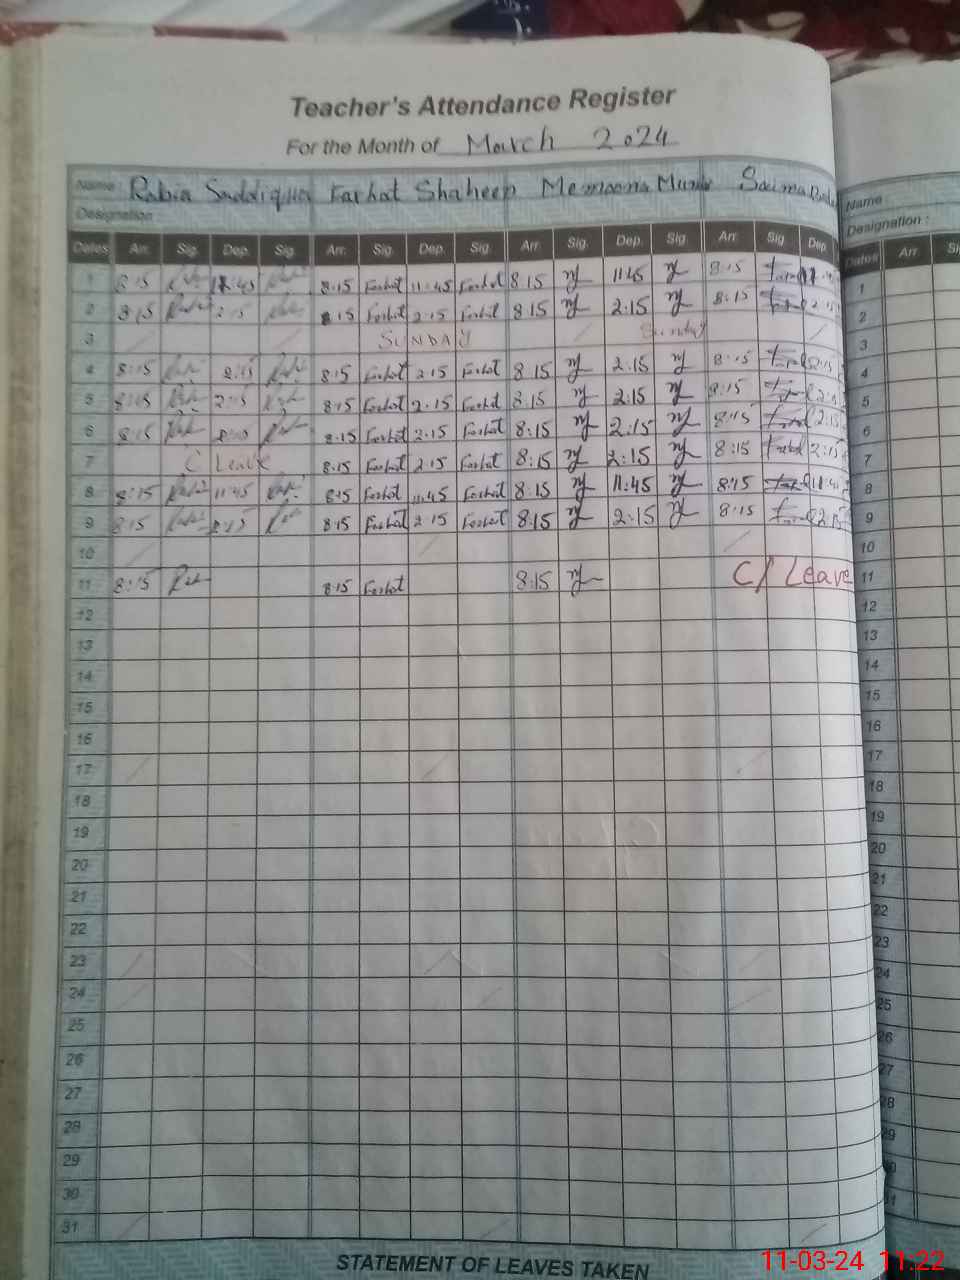 Teacher's Attendance Register
For the Month of March 2024
Name : Rabia Saddiqua Farhat Shaheen Memoona Munir Saima
Designation
Dates Arr. Sig. Dep. Sig. Arr. Sig. Dep. Sig. Arr. Sig. Dep. Sig. Arr. Sig. Dep.
1 8:15 11:45 8:15 Farhat 11:45 Farhat 8:15 11:45 8:15
2 8:15 2:15 8:15 Farhat 2:15 Farhat 8:15 2:15 8:15
3 SUNDAY Sunday
4 8:15 2:15 8:15 Farhat 2:15 Farhat 8:15 2:15 8:15 2:15
5 8:15 2:15 8:15 Farhat 2:15 Farhat 8:15 2:15 8:15
6 8:15 2:15 8:15 Farhat 2:15 Farhat 8:15 2:15 8:15 2:15
7 C Leave 8:15 Farhat 2:15 Farhat 8:15 2:15 8:15 2:15
8 8:15 11:45 8:15 Farhat 11:45 Farhat 8:15 11:45 8:15
9 8:15 2:15 8:15 Farhat 2:15 Farhat 8:15 2:15 8:15 2:15
10
11 8:15 8:15 Farhat 8:15 C/ Leave
12
13
14
15
16
17
18
19
20
21
22
23
24
25
26
27
28
29
30
31
STATEMENT OF LEAVES TAKEN
Name :
Designation :
Dates Arr
1
2
3
4
5
6
7
8
9
10
11
12
13
14
15
16
17
18
19
20
21
22
23
24
25
26
27
28
29
11-03-24 11:22